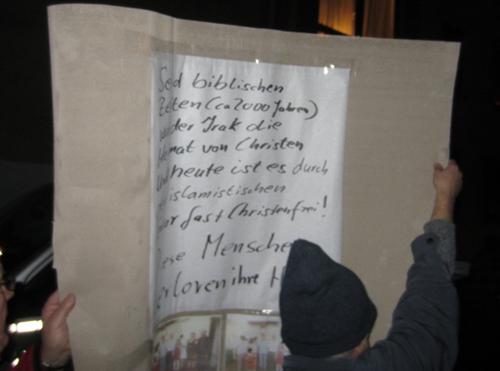 Seid biblischen
Zeiten (ca 2000 Jahren)
der Irak die
Heimat von Christen
und heute ist es durch
islamistischen
fast Christenfrei!
Diese Menschen
verloren ihre